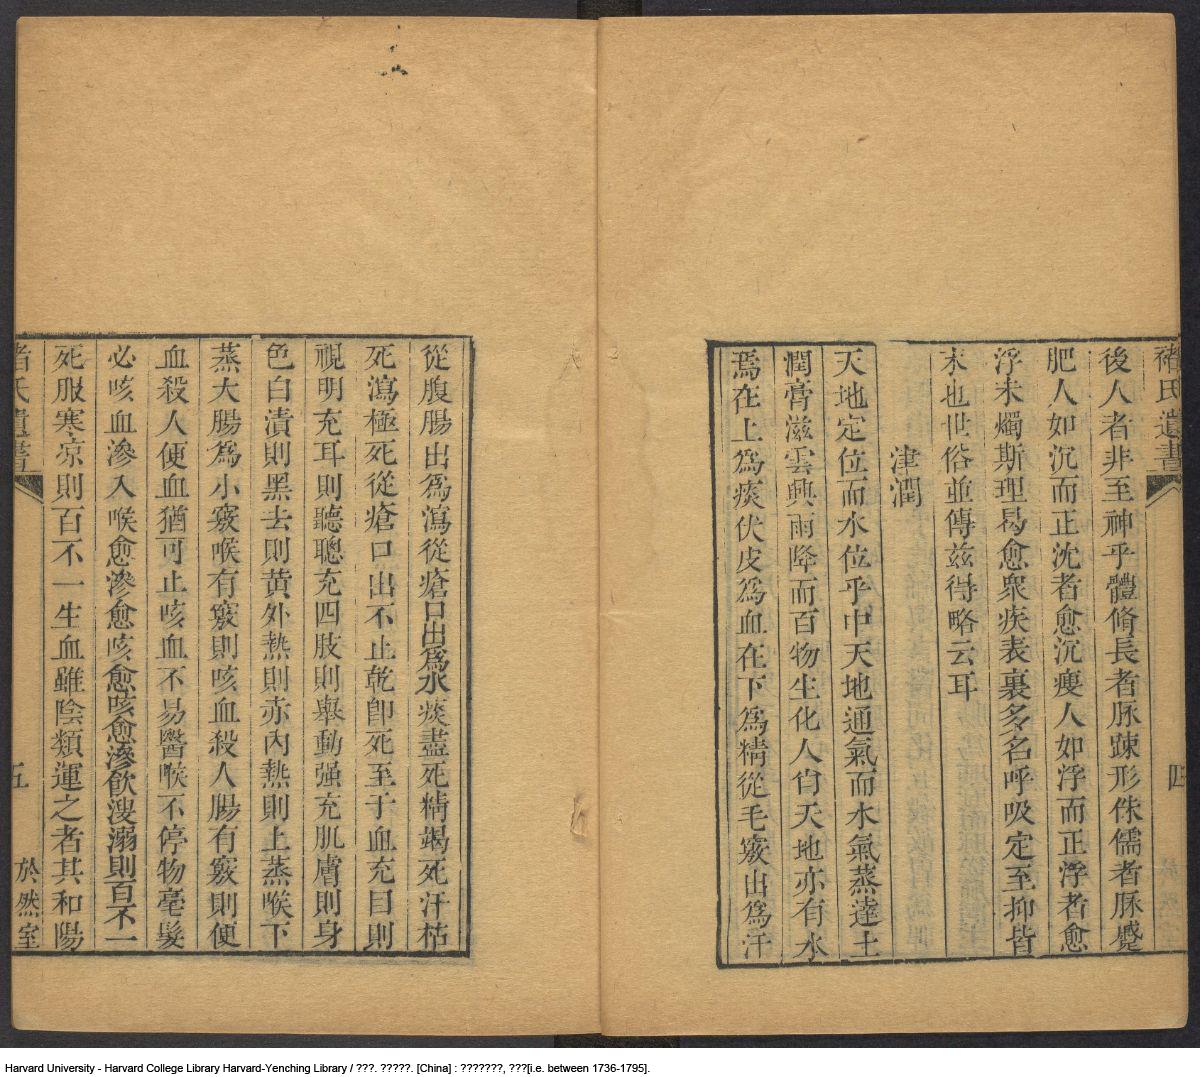 褚氏遺書
四
後人者非至神乎體脩長者脉踈形侏儒者脉蹙
肥人如沉而正沈者愈沉瘦人如浮而正浮者愈
浮未燭斯理曷愈衆疾表裏多名呼吸定至抑皆
末也世俗並傳兹得略云耳
津潤
天地定位而水位乎中天地通氣而水氣蒸達土
潤膏滋雲興雨降而百物生化人肖天地亦有水
焉在上爲痰伏皮爲血在下爲精從毛竅出爲汗
從腹腸出爲瀉從瘡口出爲水痰盡死精竭死汗枯
死瀉極死從瘡口出不止乾卽死至于血充目則
視明充耳則聽聰充四肢則舉動强充肌膚則身
色白漬則黑去則黄外熱則赤内熱則上蒸喉下
蒸大腸爲小竅喉有竅則咳血殺人腸有竅則便
血殺人便血猶可止咳血不易醫喉不停物毫髮
必咳血滲入喉愈滲愈咳愈咳愈滲飲溲溺則百不一
死服寒凉則百不一生血雖陰類運之者其和陽
褚氏遺書
五
於然室
Harvard University - Harvard College Library Harvard-Yenching Library / ???. ?????. [China] : ???????, ???[i.e. between 1736-1795].